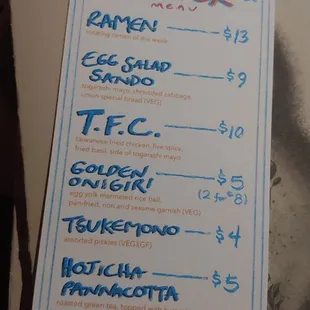 MENU
RAMEN $13
rotating ramen of the week
EGG SALAD
SANDO $9
togarashi mayo, shredded cabbage,
special bread (VEG)
T.F.C. $10
taiwanese fried chicken, five spice,
fried basil, side of togarashi mayo
GOLDEN
ONIGIRI $5
(2 for $8)
egg yolk marinated rice ball,
pan-fried, nori and sesame garnish (VEG)
TSUKEMONO $4
assorted pickles (VEG)(GF)
HOJICHA
PANNACOTTA $5
roasted green tea, topped with